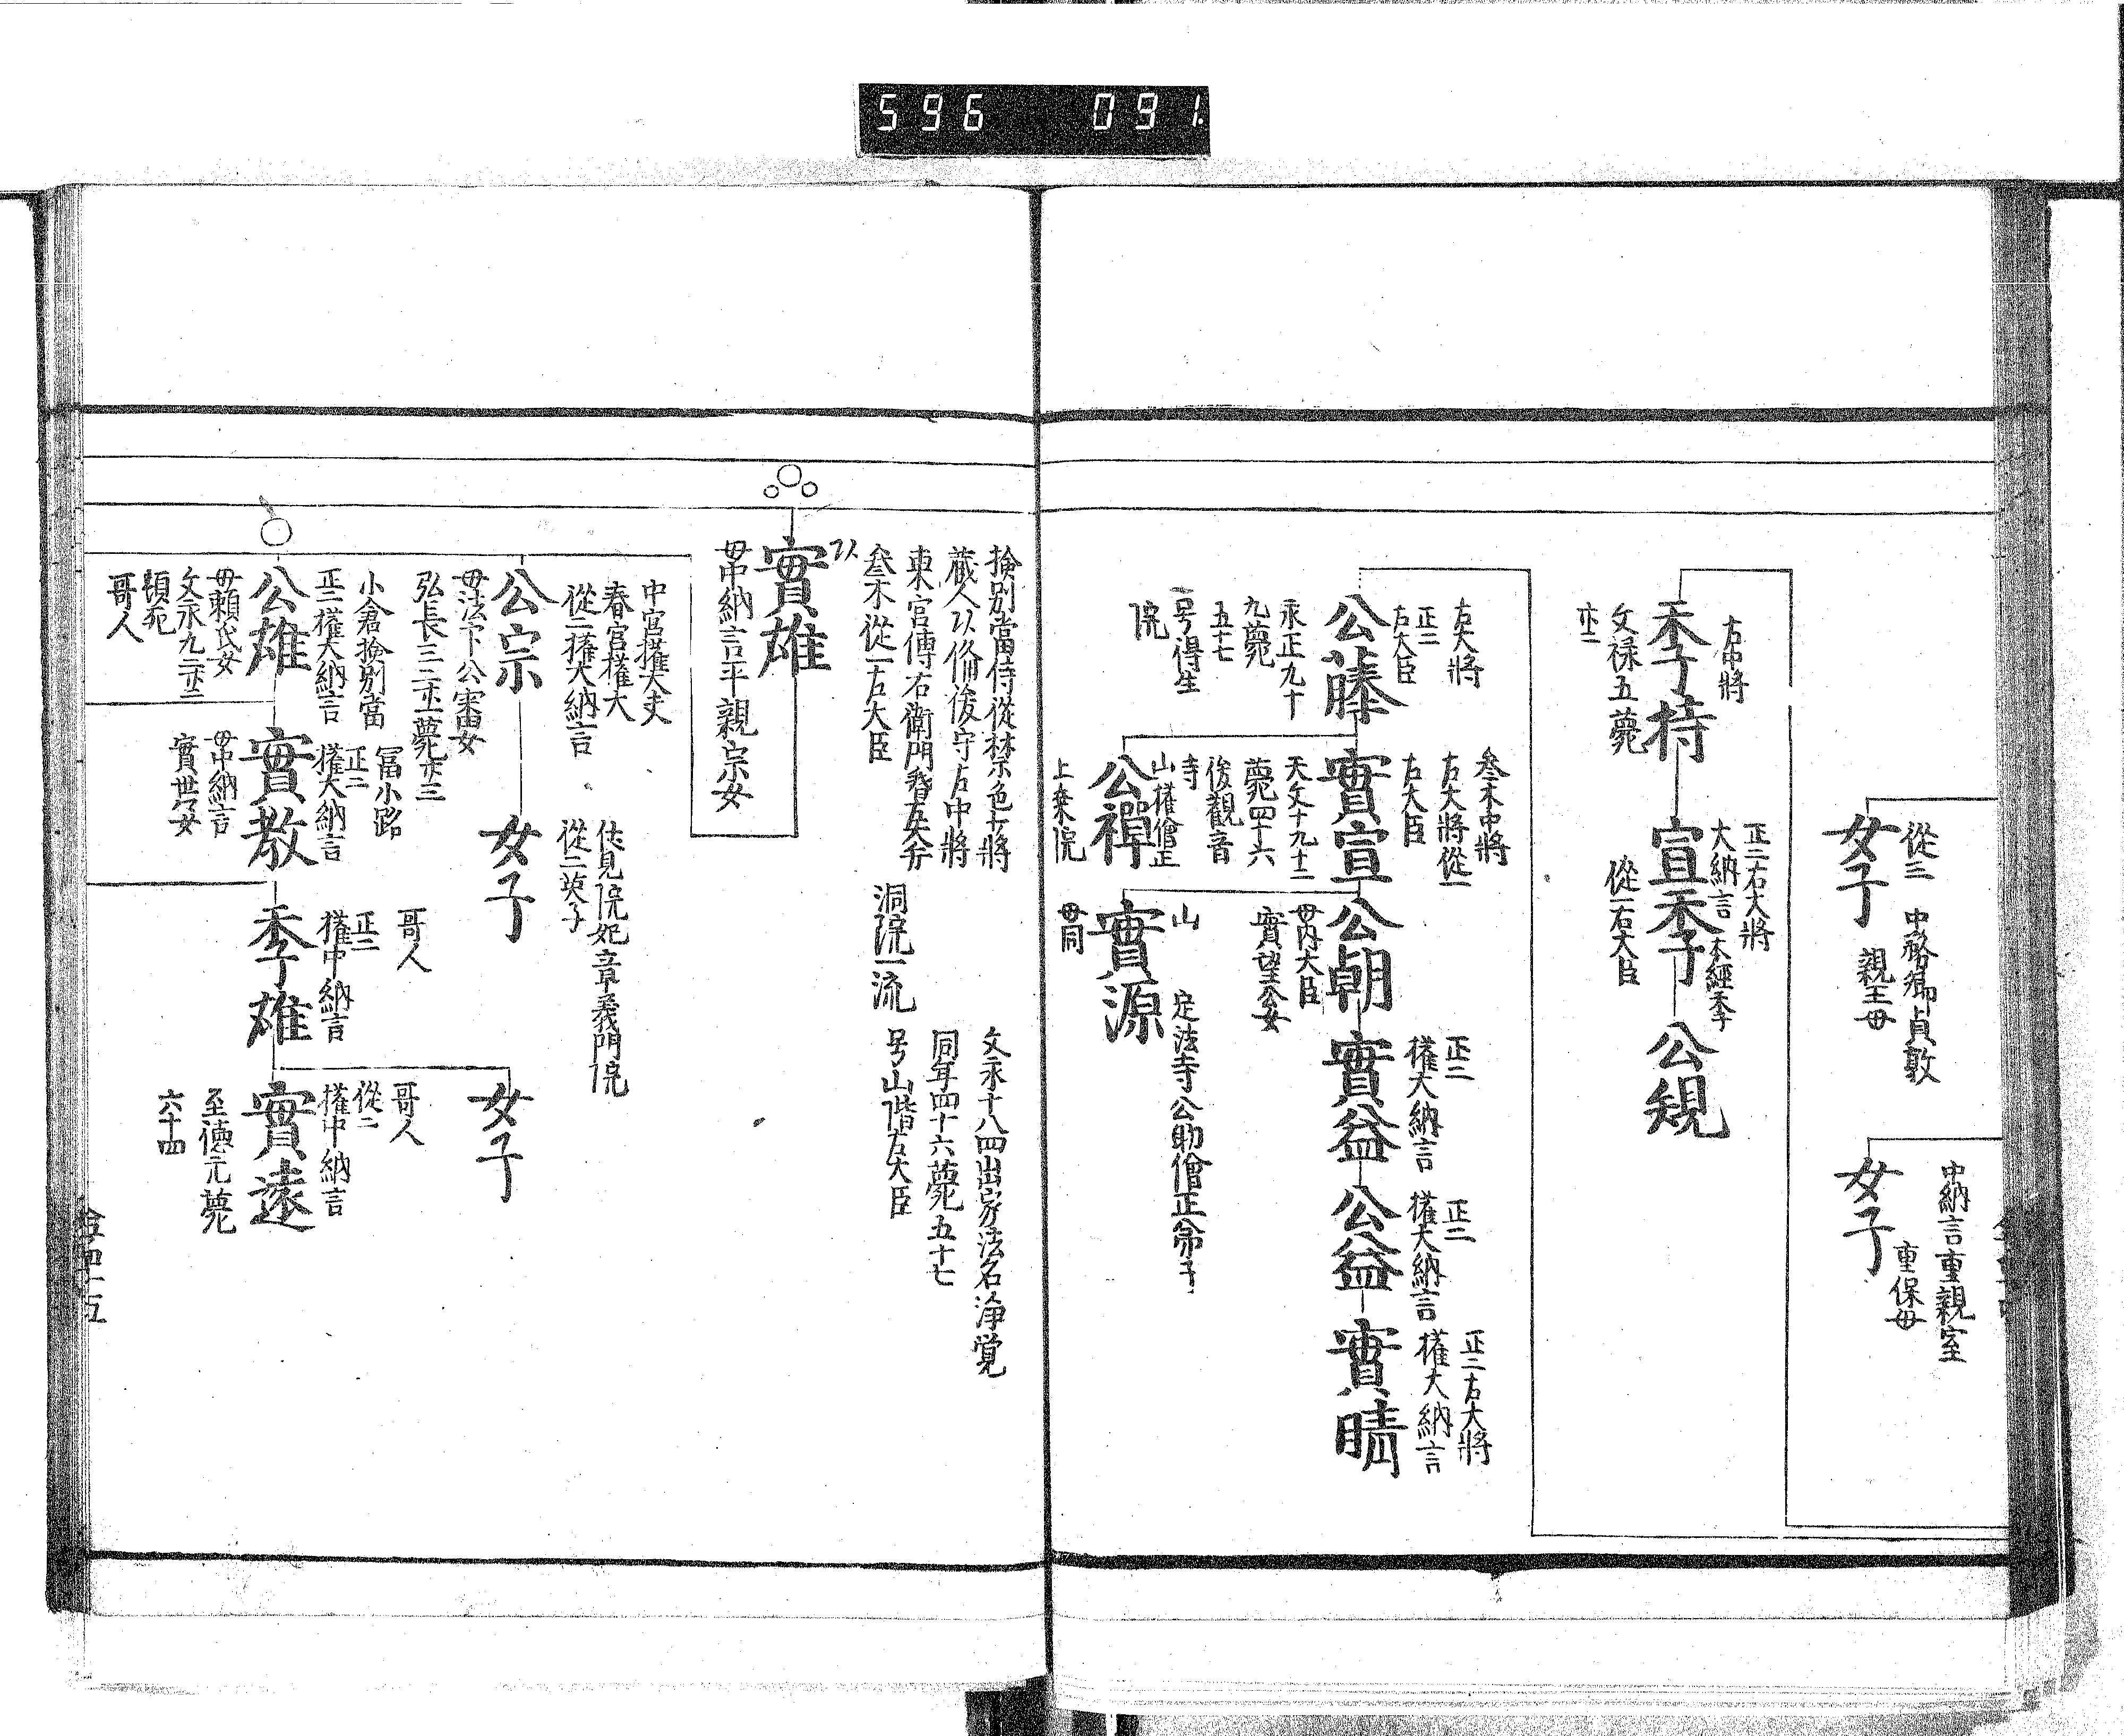 596 091.
從三 中務卿貞敦
親王母
女子
中納言重親室
重保母
女子
右中將
季持
文禄五薨
正二右大將
大納言 本經季
宣季
從一右大臣
公規
左大將
正二
左大臣
公藤
永正九十
九薨
五十七
号得生
院
叁木中將
左大將從一
右大臣
實宣
天文十九十二
薨四十六
後觀音
寺
山權僧正
公禪
上乘院
公朝
母内大臣
實望公女
山 定法寺公助僧正弟子
實源
母同
正二
權大納言
實益
正二
權大納言
公益
正二右大將
權大納言
實晴
檢別當侍從禁色少將
藏人以脩後守右中將
東宮傅右衛門督
叁木從一右大臣
洞院一流
文永十八四出家法名浄覚
同年四十六薨五十七
号山階左大臣
實雄
母中納言平親宗女
中宮權大夫
春宮權大
從二權大納言
公宗
母法下公審女
弘長三
伏見院妃章義門院
從二英子
女子
小倉檢別當
正二權大納言
公雄
母頼氏女
文永九
頓死
哥人
冨小路
正二
權大納言
實教
母中納言
實世女
哥人
正二
權中納言
季雄
女子
哥人
從二
權中納言
實遠
至徳元薨
六十四